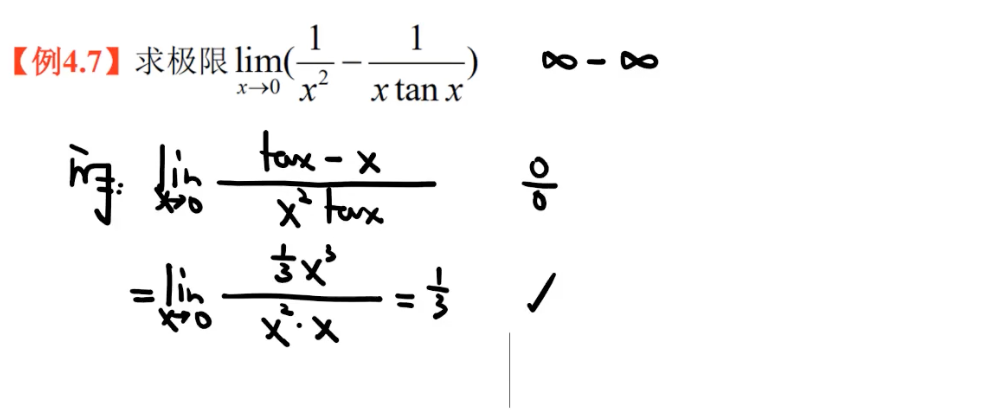 【例4.7】求极限 lim_{x→0}(1/x² − 1/(x tan x)) ∞ − ∞
原式: lim_{x→0} (tanx − x)/(x² tanx) 0/0
= lim_{x→0} (1/3 x³)/(x²·x) = 1/3 ✓